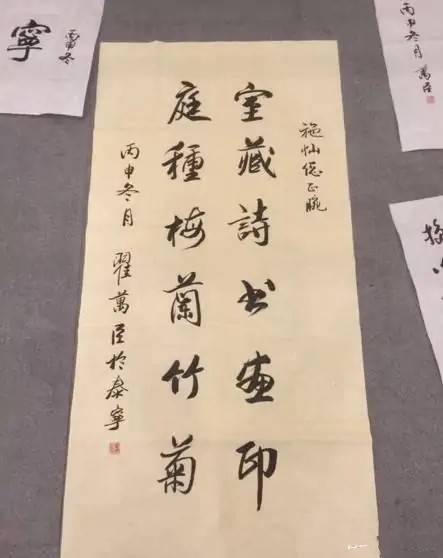 丙申冬月 萬臣
施灿總正腕
室藏詩书畫印
庭種梅蘭竹菊
丙申冬月 翟萬臣於泰寧
丙申冬
寧